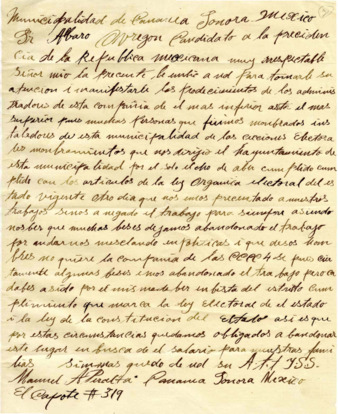 Municipalidad de Cananea Sonora Mexico
Sr Albaro Obregon Candidato a la preciden
cia de la Republica mexicana muy rrespetable
señor mio la precente le embio a ud para tomarle su
atencion i manifestarle los prosecimientos de los adminis
tradores de esta compañia de el mas inferior asta el mas
superior pues muchas personas que fuimos nombrados ins
taladores de esta municipalidad de las eleciones Electora
les nombramientos que nos dirijio el hayuntamiento de
esta municipalidad por el solo echo de aber cumplido cum
plido con los articulos de la ley Organica electoral del es
tado vigente otro dia que nos emos precentado a nuestros
trabajos senos a negado el trabajo para siempre asiendo
nos ber que muchas beses dejamos abandonado el trabajo
por andarnos mesclando en politicas i que desos hom
bres no quiere la compañia de las CCCC to se pues cier
tamente algunas beses emos abandonado el trabajo pero ca
dabes asido por el mismo deber en birtu del estricto cum
plimiento que marca la ley Electoral de el estado
i la ley de la constitucion del estado asi es que
por estas circunstancias quedamos obligados a abandonar
este lugar en busca de el salario para nuestras fami
lias sin mas quedo de ud su A. f. i SS.
Manuel A Peralta Cananea Sonora Mexico
El Capote # 319